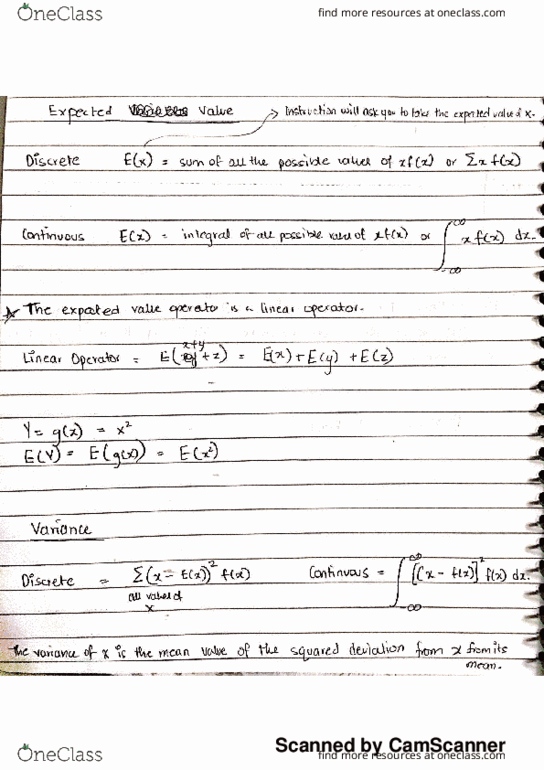 OneClass find more resources at oneclass.com
Expected Value → Instruction will ask you to take the expected value of x.
Discrete E(x) = sum of all the possible values of xf(x) or Σx f(x)
Continuous E(x) = integral of all possible value of xf(x) or ∫_{-∞}^{∞} x f(x) dx.
* The expected value operator is a linear operator.
Linear Operator = E(x+y+z) = E(x) + E(y) + E(z)
Y = g(x) = x²
E(Y) = E(g(x)) = E(x²)
Variance
Discrete = Σ(x - E(x))² f(x) Continuous = ∫_{-∞}^{∞} [(x - f(x)]² f(x) dx.
all values of
x
The variance of x is the mean value of the squared deviation from x from its
mean.
Scanned by CamScanner
OneClass find more resources at oneclass.com